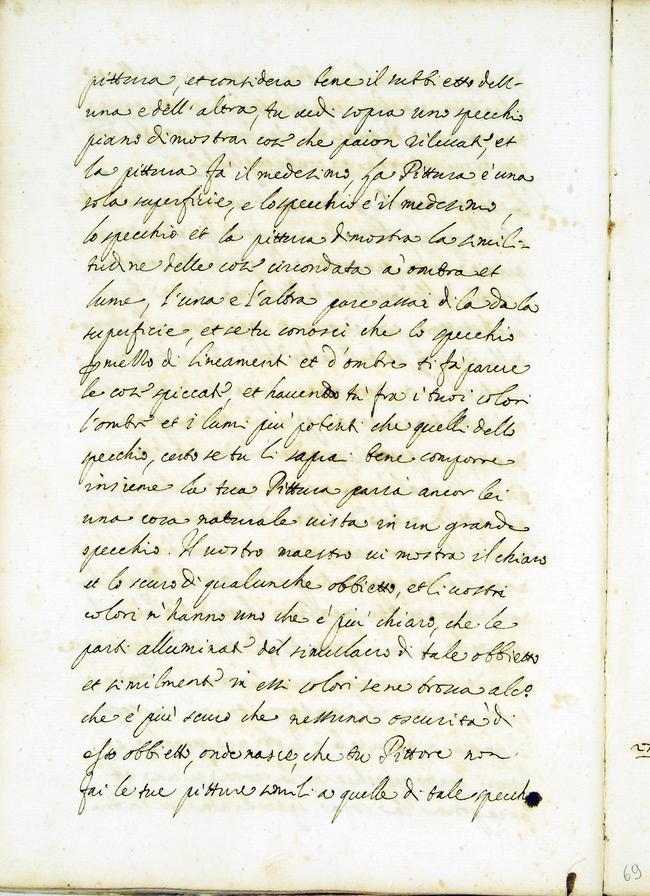 pittura, et considera bene il subbietto dell-
una e dell'altra, tu uedi sopra uno specchio
piano dimostrar cose che paion rileuate, et
la pittura fà il medesimo, La Pittura è una
sola superficie, e lo specchio è il medesimo,
lo specchio et la pittura dimostra la simili=
tudine delle cose circondata a' ombra et
lume, l'una e l'altra pare assai di la da la
superficie, et se tu conosci che lo specchio
p mezzo di lineamenti et d'ombre ti fà parere
le cose spiccate, et hauendo tù fra i tuoi colori
l'ombre et i lumi più potenti che quelli dello
specchio, certo se tu li saprai bene comporre
insieme la tua Pittura parrà ancor lei
una cosa naturale uista in un grande
specchio. Il uostro maestro ui mostra il chiaro
et lo scuro di qualunche obbietto, et li uostri
colori n'hanno uno che è più chiaro, che le
parti alluminate del simulacro di tale obbietto
et similmente in essi colori se ne troua alco
che è più scuro che nessuna oscurità di
esso obbietto, onde nasce, che tu Pittore non
fai le tue pitture simili a quelle di tale specchio
69